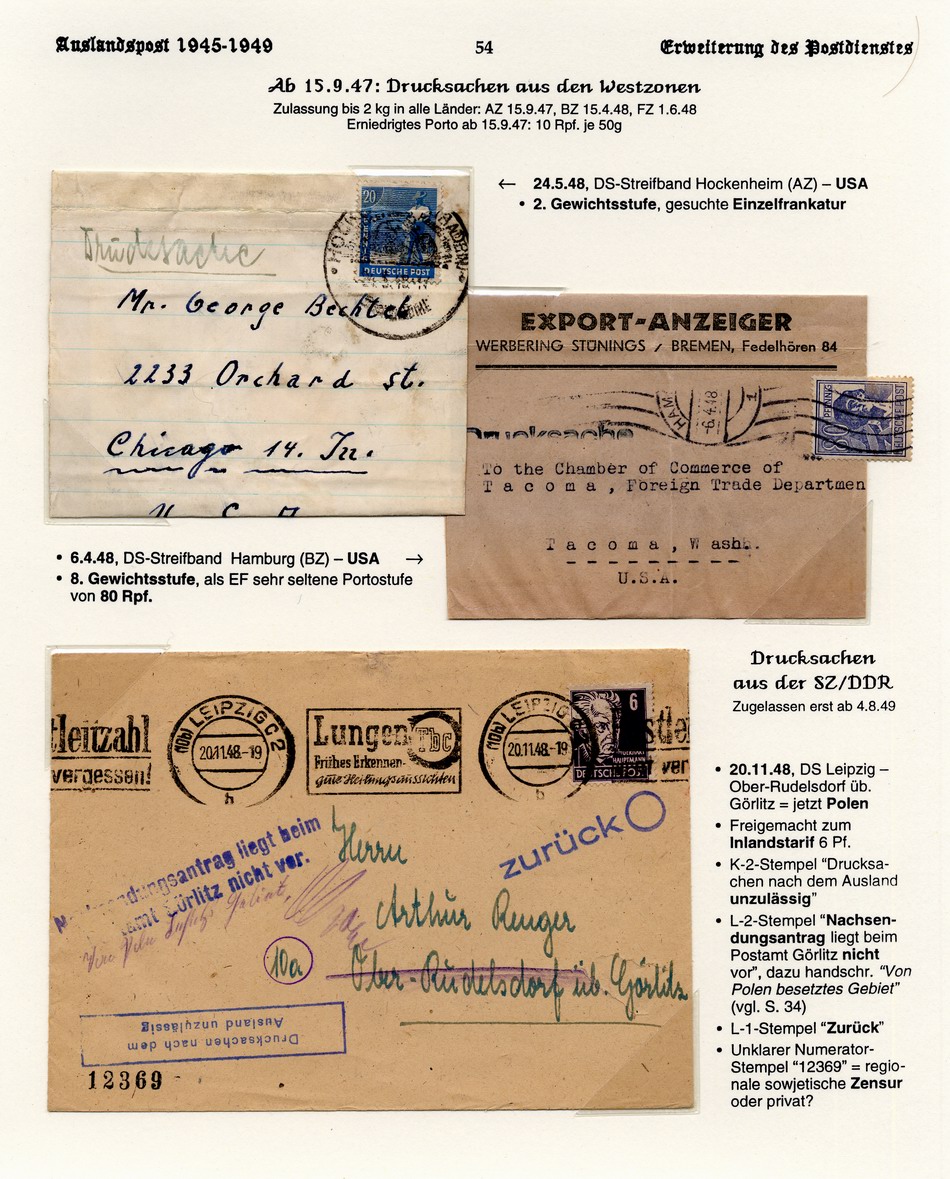 Auslandspost 1945-1949
54
Erweiterung des Postdienstes
Ab 15.9.47: Drucksachen aus den Westzonen
Zulassung bis 2 kg in alle Länder: AZ 15.9.47, BZ 15.4.48, FZ 1.6.48
Erniedrigtes Porto ab 15.9.47: 10 Rpf. je 50g
← 24.5.48, DS-Streifband Hockenheim (AZ) – USA
• 2. Gewichtsstufe, gesuchte Einzelfrankatur
20
DEUTSCHE POST
Drucksache
Mr. George Bechtel
2233 Orchard St.
Chicago 14. Ill.
U S A
EXPORT-ANZEIGER
WERBERING STÜNINGS / BREMEN, Fedelhören 84
HAM
-6.4.48
1
PFENNIG
80
DEUTSCHE POST
Drucksache
To the Chamber of Commerce of
Tacoma, Foreign Trade Departmen
Tacoma, Wash.
U.S.A.
• 6.4.48, DS-Streifband Hamburg (BZ) – USA →
• 8. Gewichtsstufe, als EF sehr seltene Portostufe
von 80 Rpf.
tleitzahl
vergessen!
(10b) LEIPZIG C2
20.11.48.-19
h
Lungen Tbc
Frühes Erkennen-
gute Heilungsaussichten
(10b) LEIPZIG
20.11.48.-19
b
6
GERHART
HAUPTMANN
DEUTSCHE POST
stle
ver
zurück
Nachsendungsantrag liegt beim
amt Görlitz nicht vor.
Von Polen besetztes Gebiet
Herrn
Arthur Renger
10a
Ober-Rudelsdorf üb. Görlitz
Drucksachen nach dem
Ausland unzulässig
12369
Drucksachen
aus der SZ/DDR
Zugelassen erst ab 4.8.49
• 20.11.48, DS Leipzig –
Ober-Rudelsdorf üb.
Görlitz = jetzt Polen
• Freigemacht zum
Inlandstarif 6 Pf.
• K-2-Stempel “Drucksa-
chen nach dem Ausland
unzulässig”
• L-2-Stempel “Nachsen-
dungsantrag liegt beim
Postamt Görlitz nicht
vor”, dazu handschr. “Von
Polen besetztes Gebiet”
(vgl. S. 34)
• L-1-Stempel “Zurück”
• Unklarer Numerator-
Stempel “12369” = regio-
nale sowjetische Zensur
oder privat?